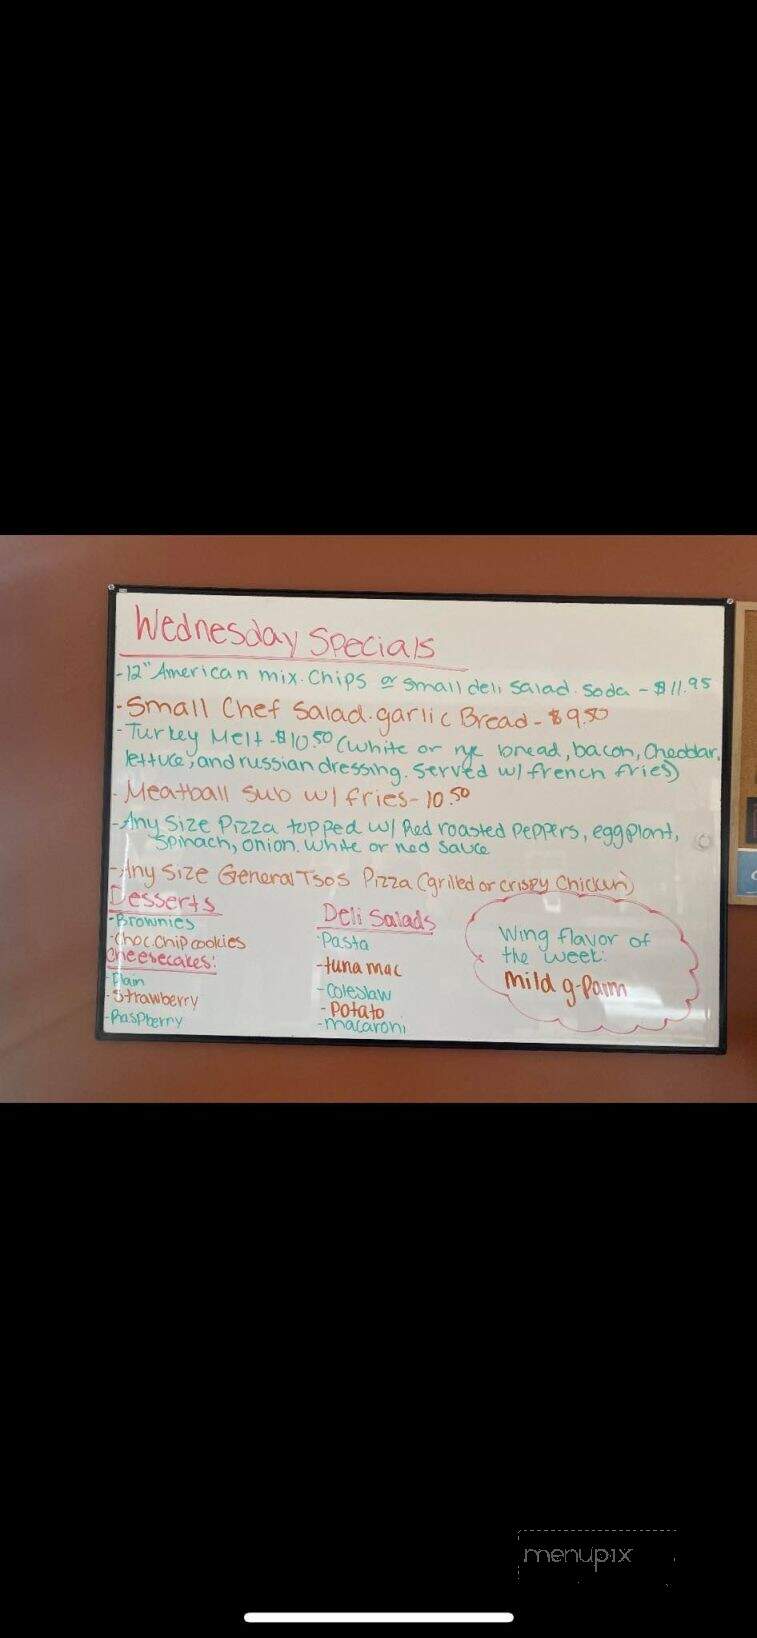 Wednesday Specials
-12" American mix. Chips or small deli salad. Soda - $11.95
-Small Chef Salad. garlic Bread - $9.50
-Turkey Melt - $10.50 (white or rye bread, bacon, Cheddar,
lettuce, and russian dressing. Served w/ french fries)
- Meatball Sub w/ fries - 10.50
-Any Size Pizza topped w/ Red roasted Peppers, eggplant,
Spinach, onion. White or red Sauce
-Any Size General Tsos Pizza (grilled or crispy Chicken)
Desserts
-Brownies
-Choc. Chip cookies
Cheesecakes:
-Plain
-Strawberry
-Raspberry
Deli Salads
-Pasta
-tuna mac
-Coleslaw
-Potato
-macaroni
Wing flavor of
the week:
Mild g-Parm
menupix